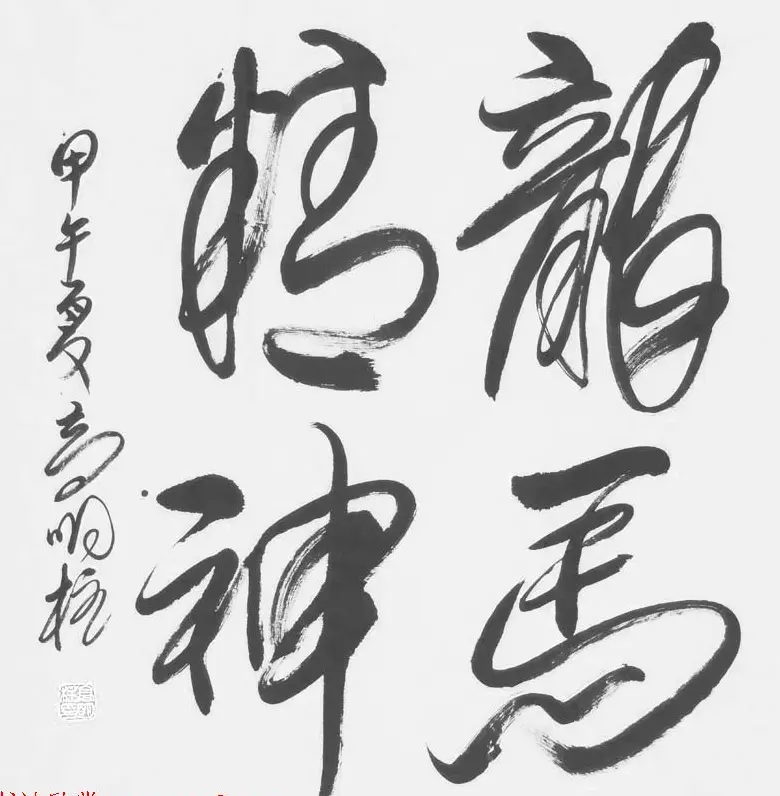 龍馬
精神
甲午夏高明柱